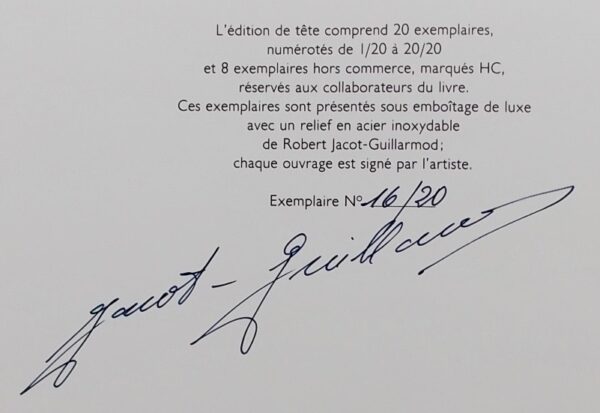 L'édition de tête comprend 20 exemplaires,
numérotés de 1/20 à 20/20
et 8 exemplaires hors commerce, marqués HC,
réservés aux collaborateurs du livre.
Ces exemplaires sont présentés sous emboîtage de luxe
avec un relief en acier inoxydable
de Robert Jacot-Guillarmod;
chaque ouvrage est signé par l'artiste.
Exemplaire N° 16/20
Jacot-Guillarmod